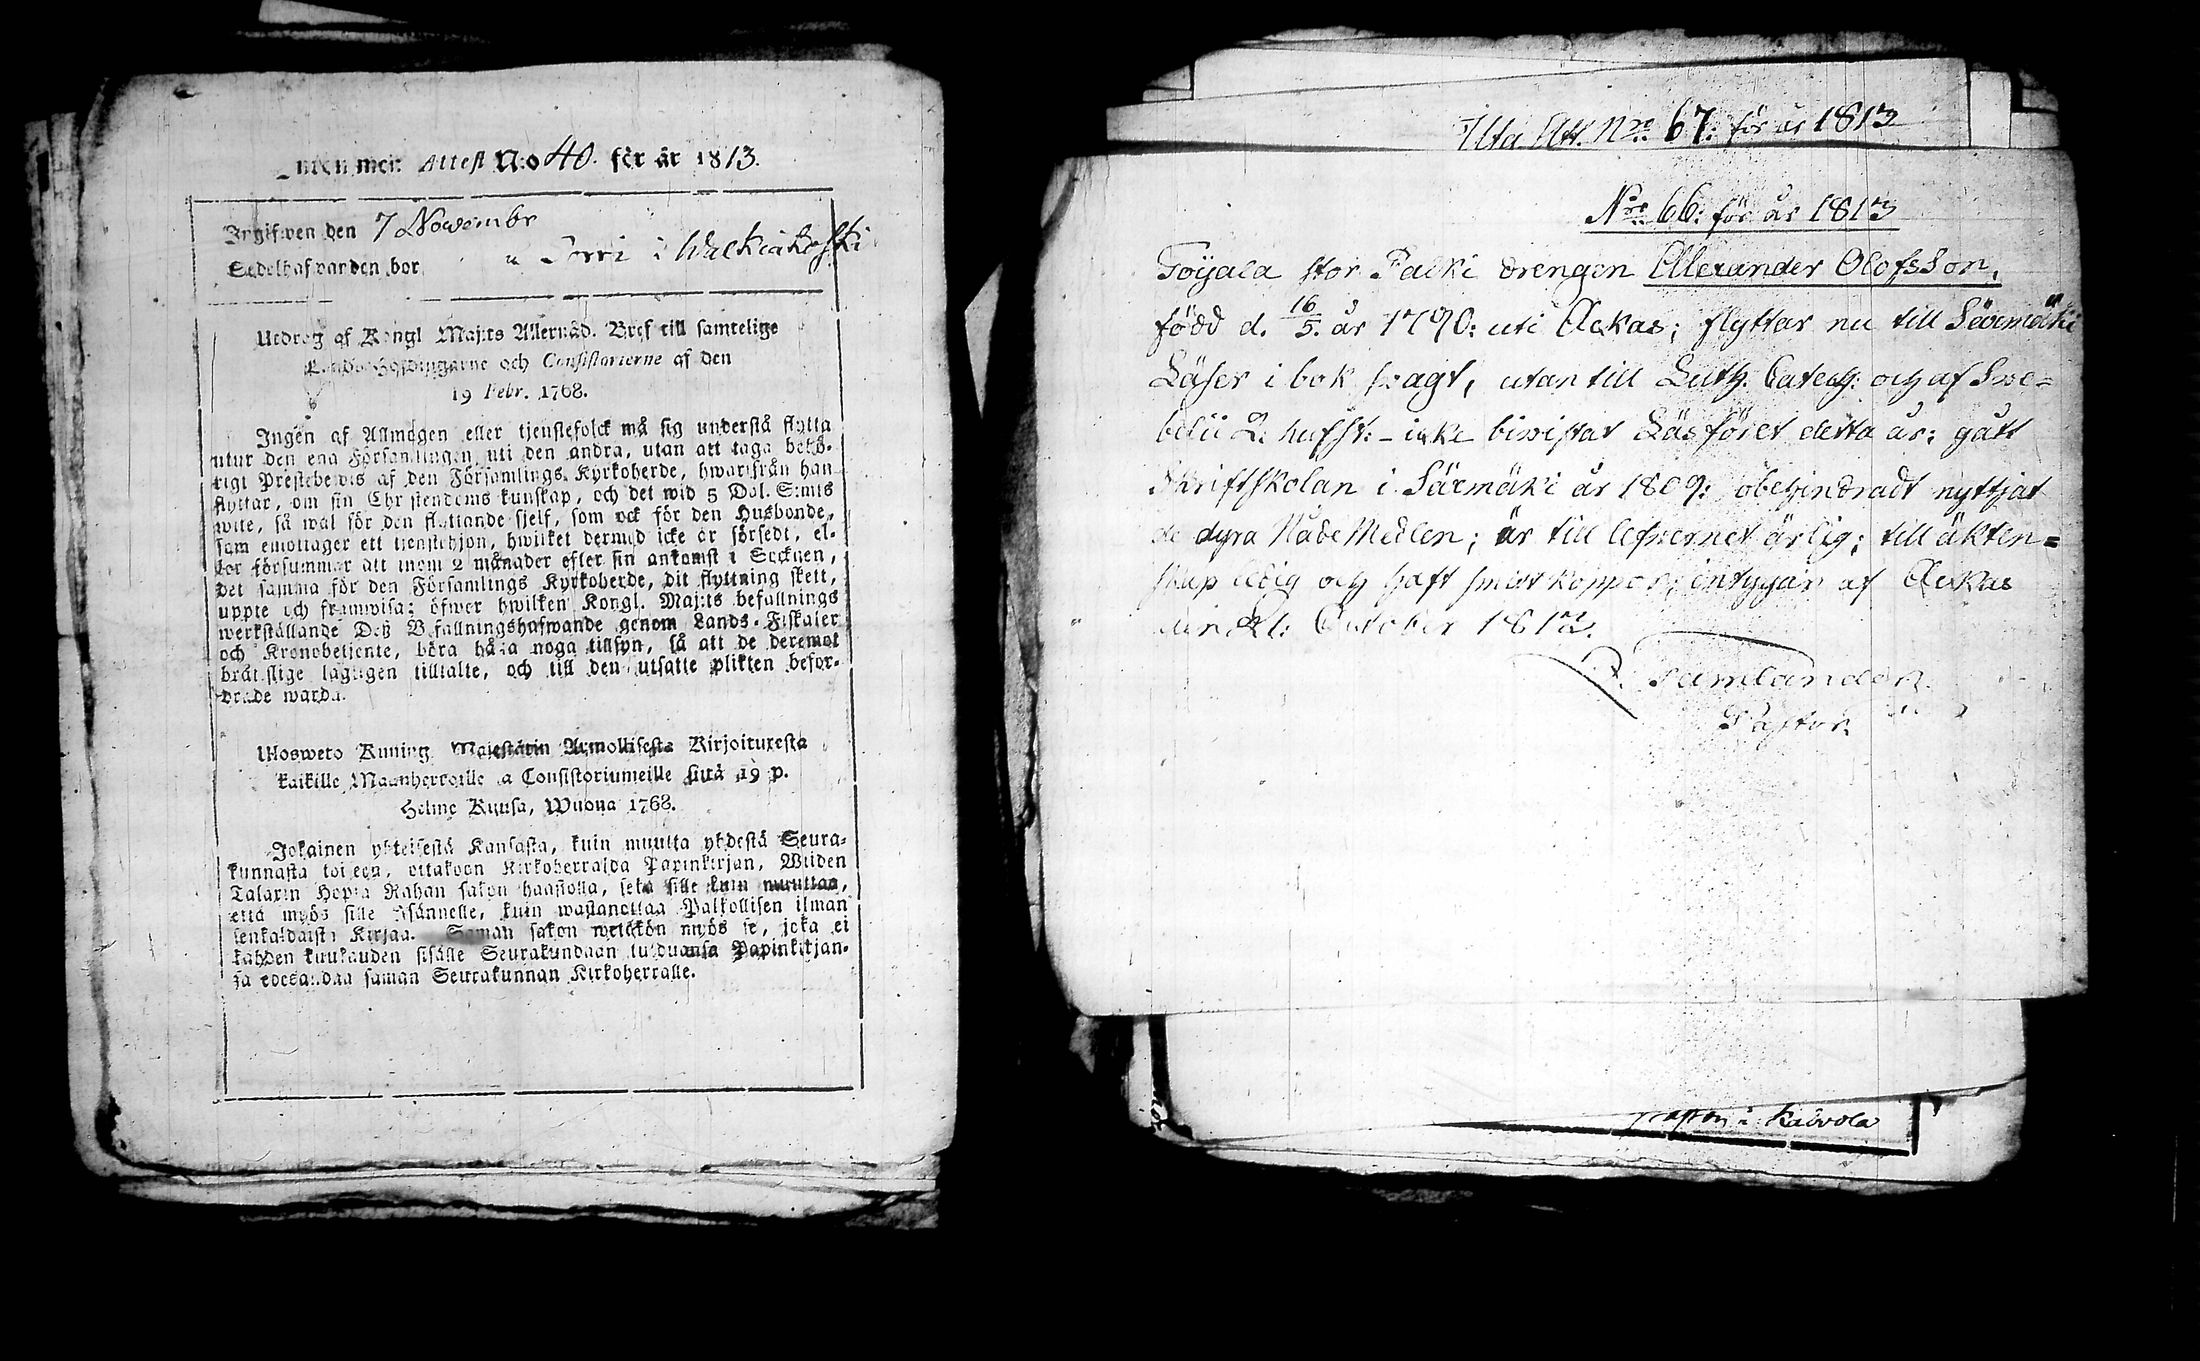 Attest N:o 40. för år 1813.
Ingifwen den 7 Novembr
Sedelhafwanden bor i Walkiakoski
Utdrag af Kongl Maj:ts Allernåd. Bref till samtelige
Landshöfdingarne och Consistorierne af den
19 Febr. 1768.
Ingen af Allmogen eller tjenstefolck må sig understå flytta
utur den ena Församlingen uti den andra, utan att taga behö-
rigt Prestebewis af den Församlings Kyrkoherde, hwarifrån han
flyttar, om sin Christendoms kunskap, och det wid 5 Dal. S:mts
wite, så wäl för den flyttande sjelf, som ock för den Husbonde,
som emottager ett tjenstehjon, hwilket dermed icke är försedt, el-
ler försummar att inom 2 månader efter sin ankomst i Socknen,
det samma för den Församlings Kyrkoherde, dit flyttning skett,
uppte och framwisa; öfwer hwilken Kongl. Maj:ts befallnings
werkställande Deß Befallningshafwande genom Lands-Fiskaler
och Kronobetjente, böra hafa noga tillsyn, så att de deremot
brätslige lagligen tilltalte, och till den utsatte plikten befor-
drade warda.
Ulosweto Kuning. Majestätin Armollisesta Kirjoituxesta
kaikille Maanherroille ja Consistoriumeille siitä 19 p.
Helme Kuusa, Wuona 1768.
Jokainen yhteisestä Kansasta, kuin muutta yhdestä Seura-
kunnasta toiseen, ottakoon Kirkoherralda Papinkirjan, Wiiden
Talarin Hopia Rahan sakon haastolla, sekä sille kuin muuttaa,
että myös sille Isännelle, kuin wastanottaa Palkollisen ilman
senkaldaista Kirjaa. Saman sakon wetäkön myös se, joka ei
kahden kuukauden sisälle Seurakundaan tulduansa Papinkirjan-
sa edesandaa saman Seurakunnan Kirkoherralle.
Att. Nro 67: för år 1813
Nro 66: för år 1813
Toijala stor Palki drengen Allexander Olofsson,
född d. 16/5. år 1790: uti Ackas; flyttar nu till Säexmäki
Läser i bok swagt, utan till Luth. Catech: och af Swe=
belii 2. hufst: - icke biwistat Läsföret detta år; gått
Skriftskolan i Säexmäki år 1809: obehindradt nyttjat
de dyra Nåde Medlen; är till lefwernet ärlig; till äkten=
skap ledig och haft smittkoppor; intygar af Ackas
den 21: October 1813.
P. Tamlander
Pastor
i Kalvola